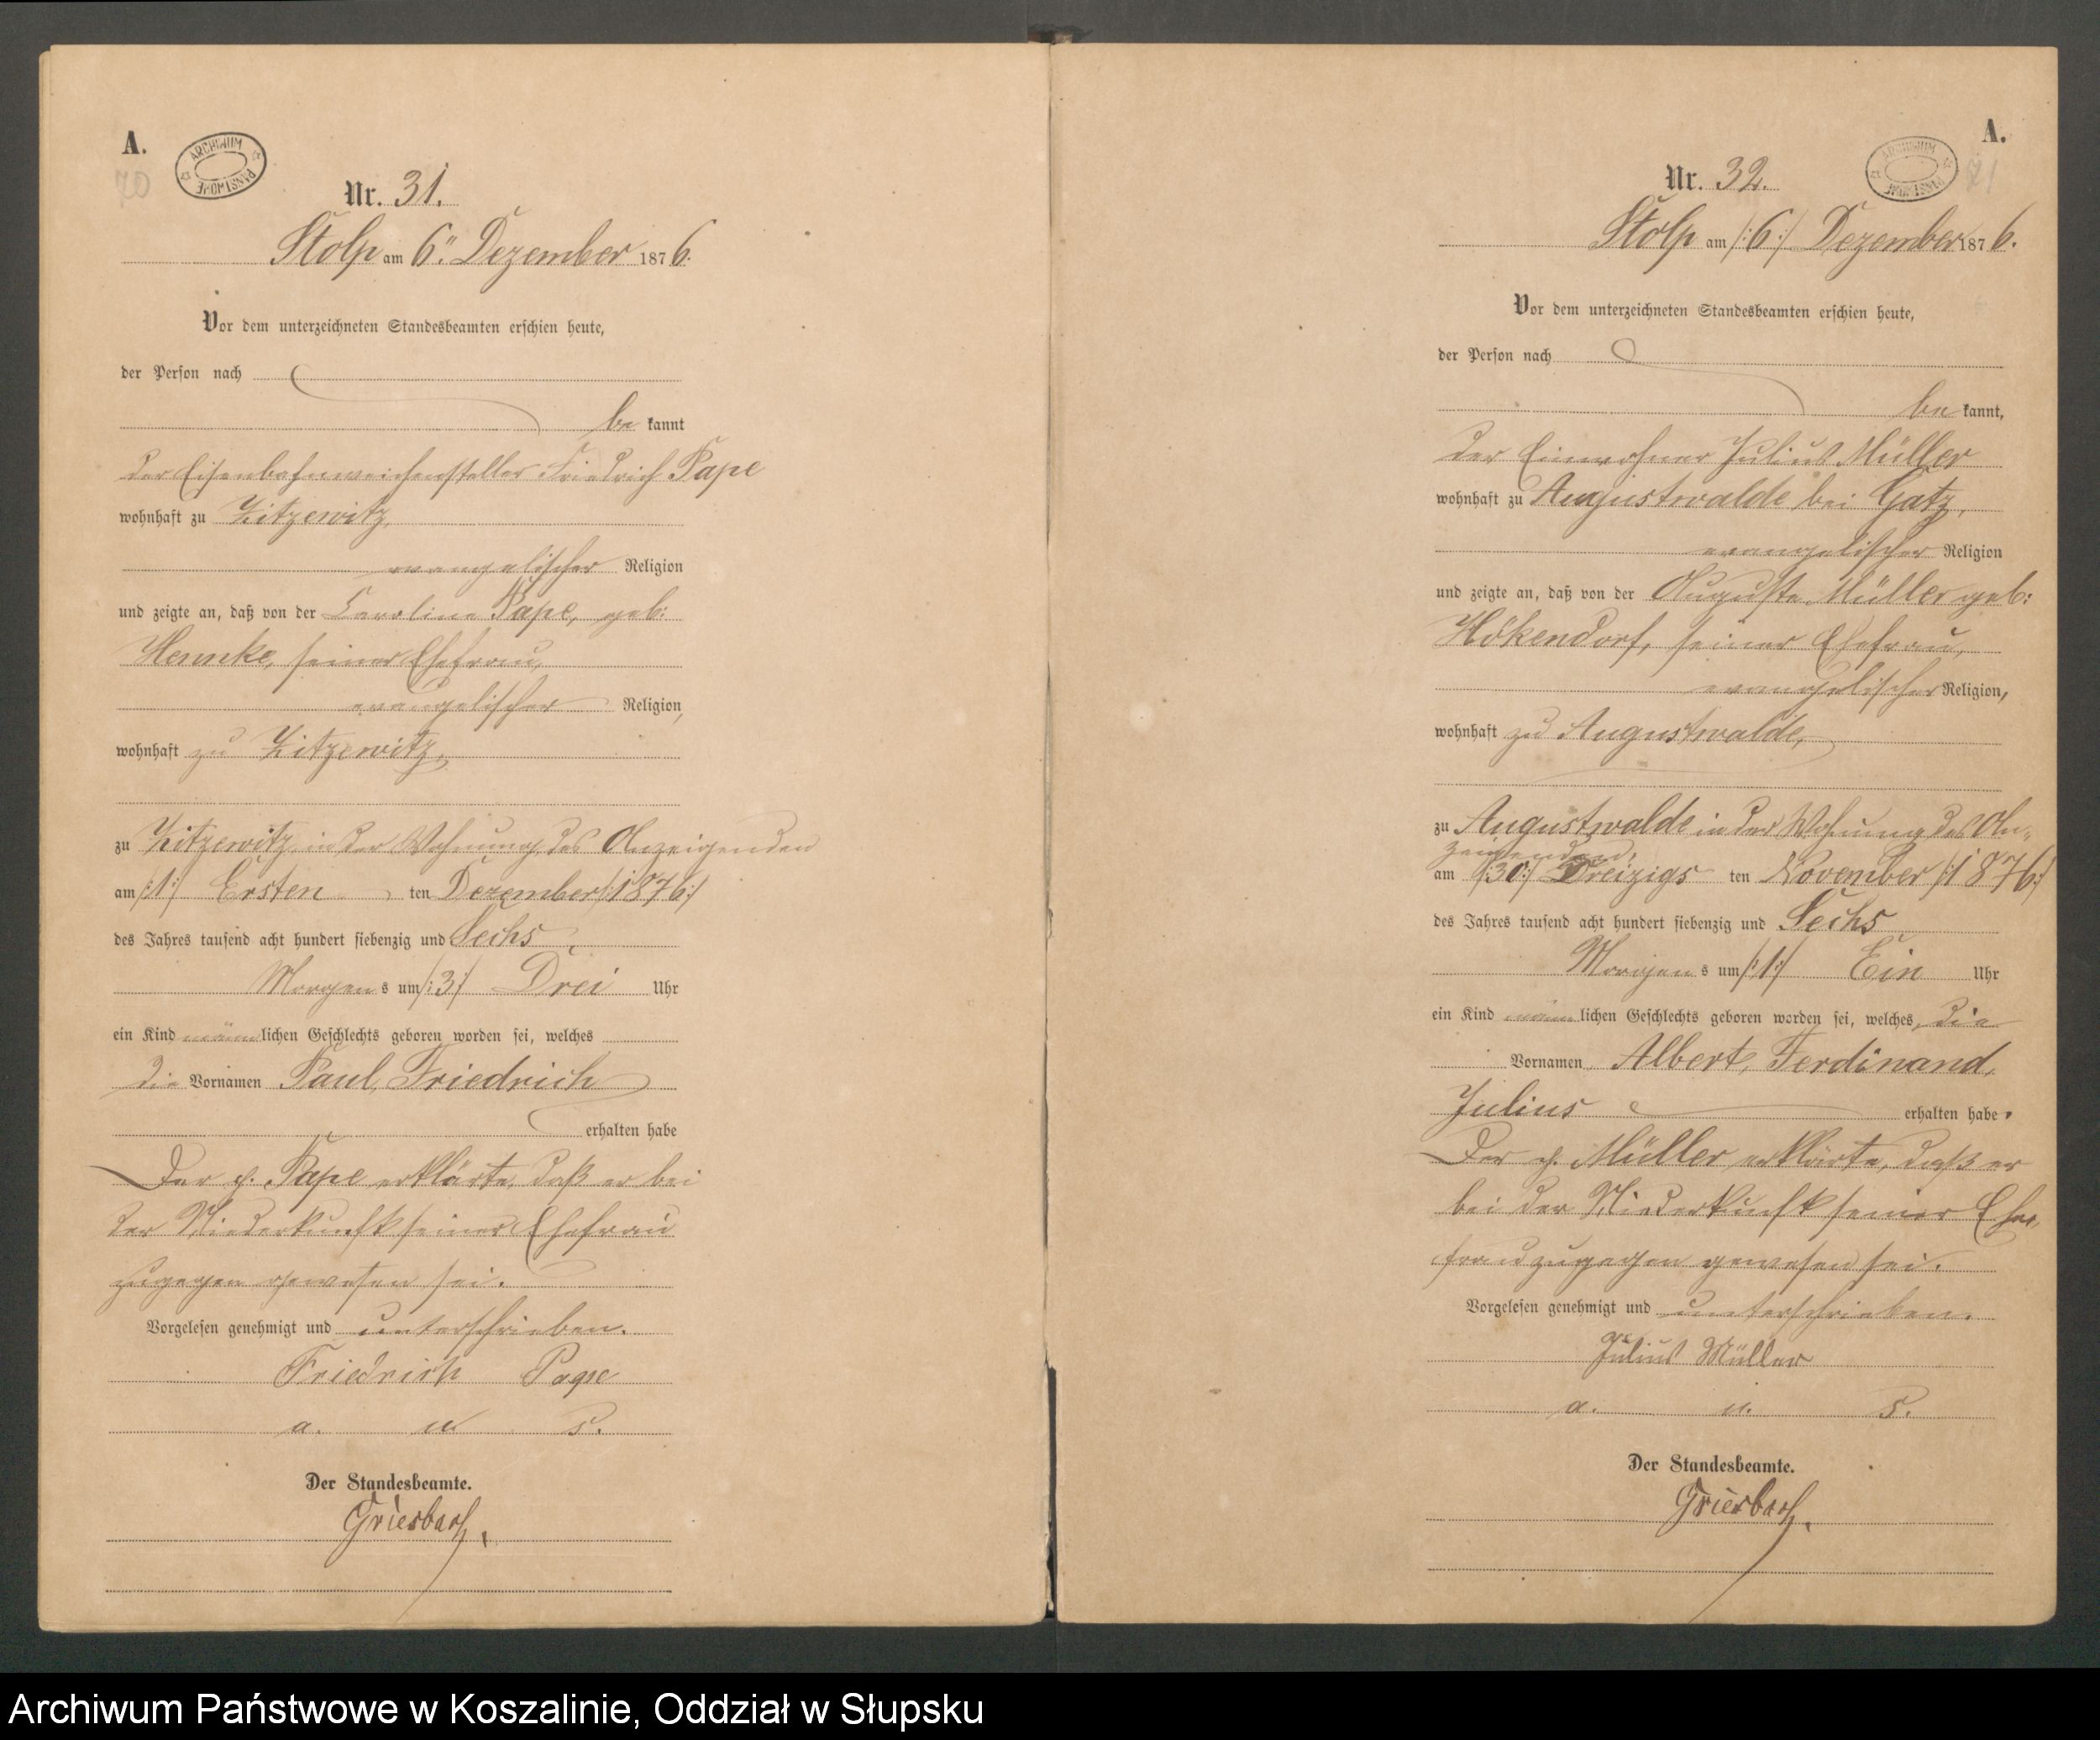 A.
70
ARCHIWUM PAŃSTWOWE
Nr. 31.
Stolp am 6ten Dezember 1876.
Vor dem unterzeichneten Standesbeamten erschien heute,
der Person nach
be kannt
der Eisenbahnweichensteller Friedrich Pape
wohnhaft zu Zitzewitz,
evangelischer Religion
und zeigte an, daß von der Caroline Pape, geb:
Hennke, seiner Ehefrau,
evangelischer Religion,
wohnhaft zu Zitzewitz,
zu Zitzewitz in der Wohnung des Anzeigenden
am /:1:/ Ersten ten Dezember /:1876:/
des Jahres tausend acht hundert siebenzig und Sechs,
Morgens um /:3:/ Drei Uhr
ein Kind männlichen Geschlechts geboren worden sei, welches
die Vornamen Paul, Friedrich
erhalten habe
Der p. Pape erklärte, daß er bei
der Niederkunft seiner Ehefrau
zugegen gewesen sei.
Vorgelesen genehmigt und unterschrieben.
Friedrich Pape
a. u. s.
Der Standesbeamte.
Griesbach.
A.
71
ARCHIWUM PAŃSTWOWE
Nr. 32.
Stolp am /:6:/ Dezember 1876.
Vor dem unterzeichneten Standesbeamten erschien heute,
der Person nach
be kannt,
der Einwohner Julius Müller
wohnhaft zu Augustwalde bei Gatz,
evangelischer Religion
und zeigte an, daß von der Auguste Müller geb:
Hökendorf, seiner Ehefrau,
evangelischer Religion,
wohnhaft zu Augustwalde,
zu Augustwalde in der Wohnung des An-
zeigenden,
am /:30:/ Dreizigs ten November /:1876:/
des Jahres tausend acht hundert siebenzig und Sechs
Morgens um /:1:/ Ein Uhr
ein Kind männlichen Geschlechts geboren worden sei, welches, die
Vornamen Albert, Ferdinand,
Julius erhalten habe.
Der p. Müller erklärte, daß er
bei der Niederkunft seiner Ehe-
frau zugegen gewesen sei.
Vorgelesen genehmigt und unterschrieben.
Julius Müller
a. u. s.
Der Standesbeamte.
Griesbach.
Archiwum Państwowe w Koszalinie, Oddział w Słupsku